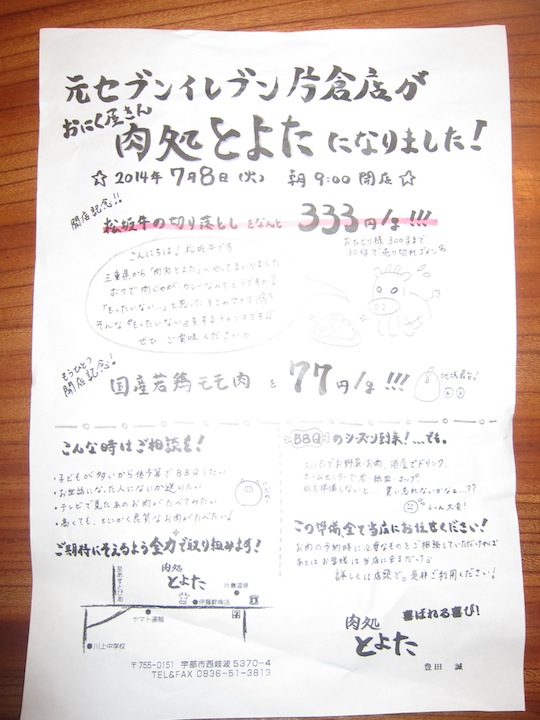 元セブンイレブン片倉店が
おにく屋さん
肉処とよたになりました!
☆ 2014年7月8日(火) 朝9:00開店 ☆
開店記念!!
松坂牛の切り落としをなんと 333円/g!!!
おひとり様300gまで
30分で売り切れゴメン
こんにちは! 松坂牛です
三重県から「肉処とよた」へやってまいりました
ボクで肉じゃがカレーなんてどうですか?
「もったいない…」と思ったそこのアナタ
そんな"もったいない"をするチャンスです!!
ぜひ ご賞味ください
もうひとつ
開店記念!
国産若鶏モモ肉を 77円/g!!!
こんな時はご相談を!
・子どもが多いから格予算でBBQしたい
・お世話になった人になにか送りたい
・テレビで見たあのお肉がたべてみたい
・高くても、とにかく良質なお肉がたべたい!
ご期待にそえるよう全力で取り組みます!
BBQのシーズン到来!…でも。
スーパーでお野菜・お肉、酒屋でドリンク、
ホームセンターで炭・紙皿・コップ。
この準備、全て当店にお任せください!
お肉の予約時に必要なものをご相談していただければ
あとはお客様は当店に来るだけ。
詳しくは店頭で。是非ご利用ください!
肉処
とよた
片倉温泉
至あすとぴあ
伊藤鮮魚店
ヤマト運輸
川上中学校
〒755-0151 宇部市西岐波5370-4
TEL&FAX 0836-51-3813
喜ばれる喜び!
肉処
とよた
豊田 誠